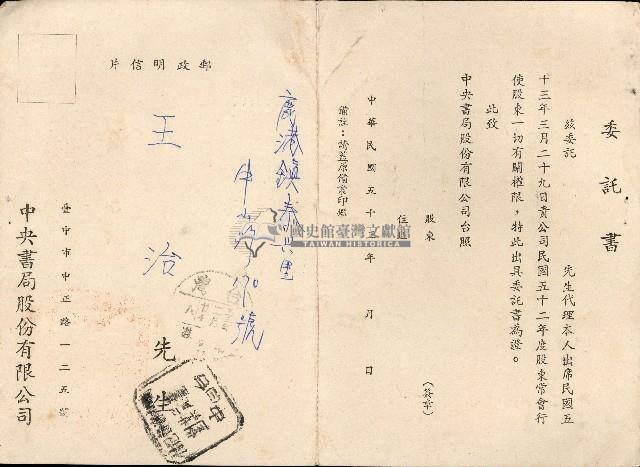 委託書
茲委託　　　先生代理本人出席民國五
十三年三月二十九日貴公司民國五十二年度股東常會行
使股東一切有關權限，特此出具委託書為證。
此致
中央書局股份有限公司台照
股東　　　（簽章）
住
中華民國五十　年　月　日
備註：請蓋原備案印鑑
郵政明信片
鹿港鎮　里
中山　號
王治先生
臺中市中正路一二五號
中央書局股份有限公司
國史館臺灣文獻館
TAIWAN HISTORICA